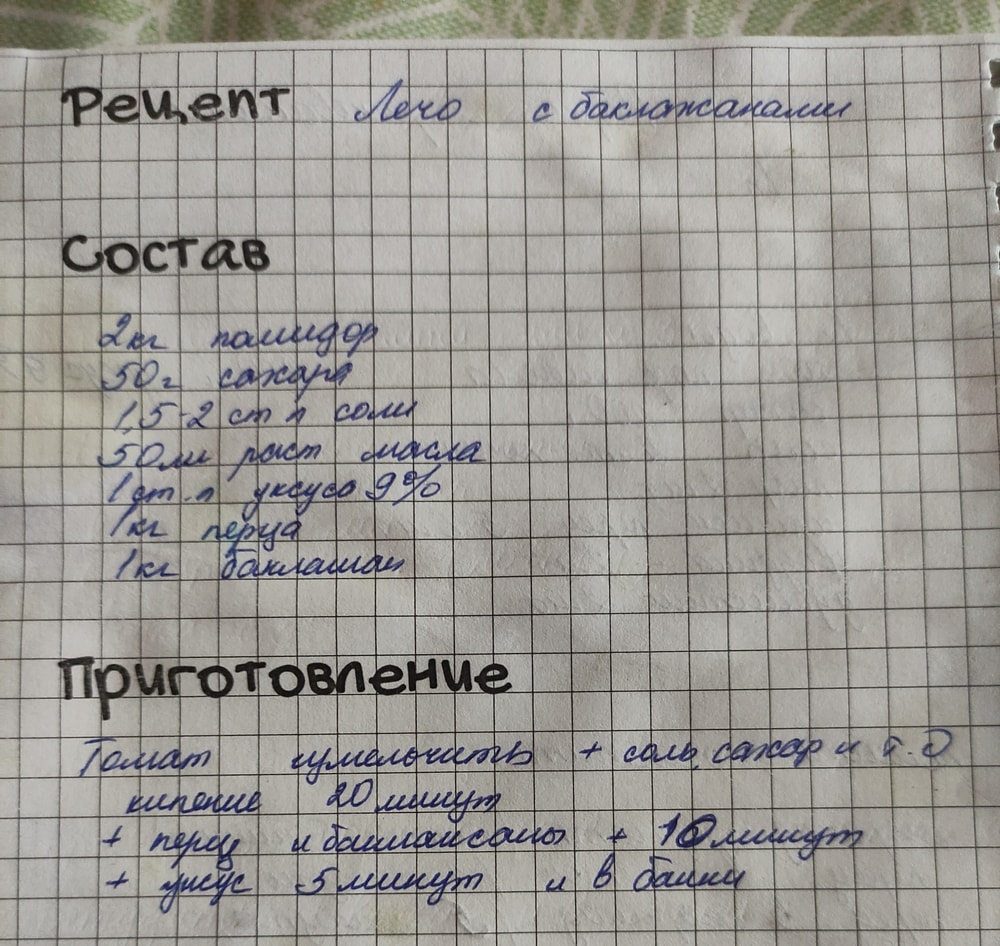 Рецепт Лечо с баклажанами
Состав
2кг помидор
50г сахара
1,5-2 ст л соли
50мл раст масла
1 ст.л уксуса 9%
1кг перца
1кг баклажан
Приготовление
Томат измельчить + соль, сахар и т.д
кипение 20 минут
+ перец и баклажаны + 10 минут
+ уксус 5 минут и в банки